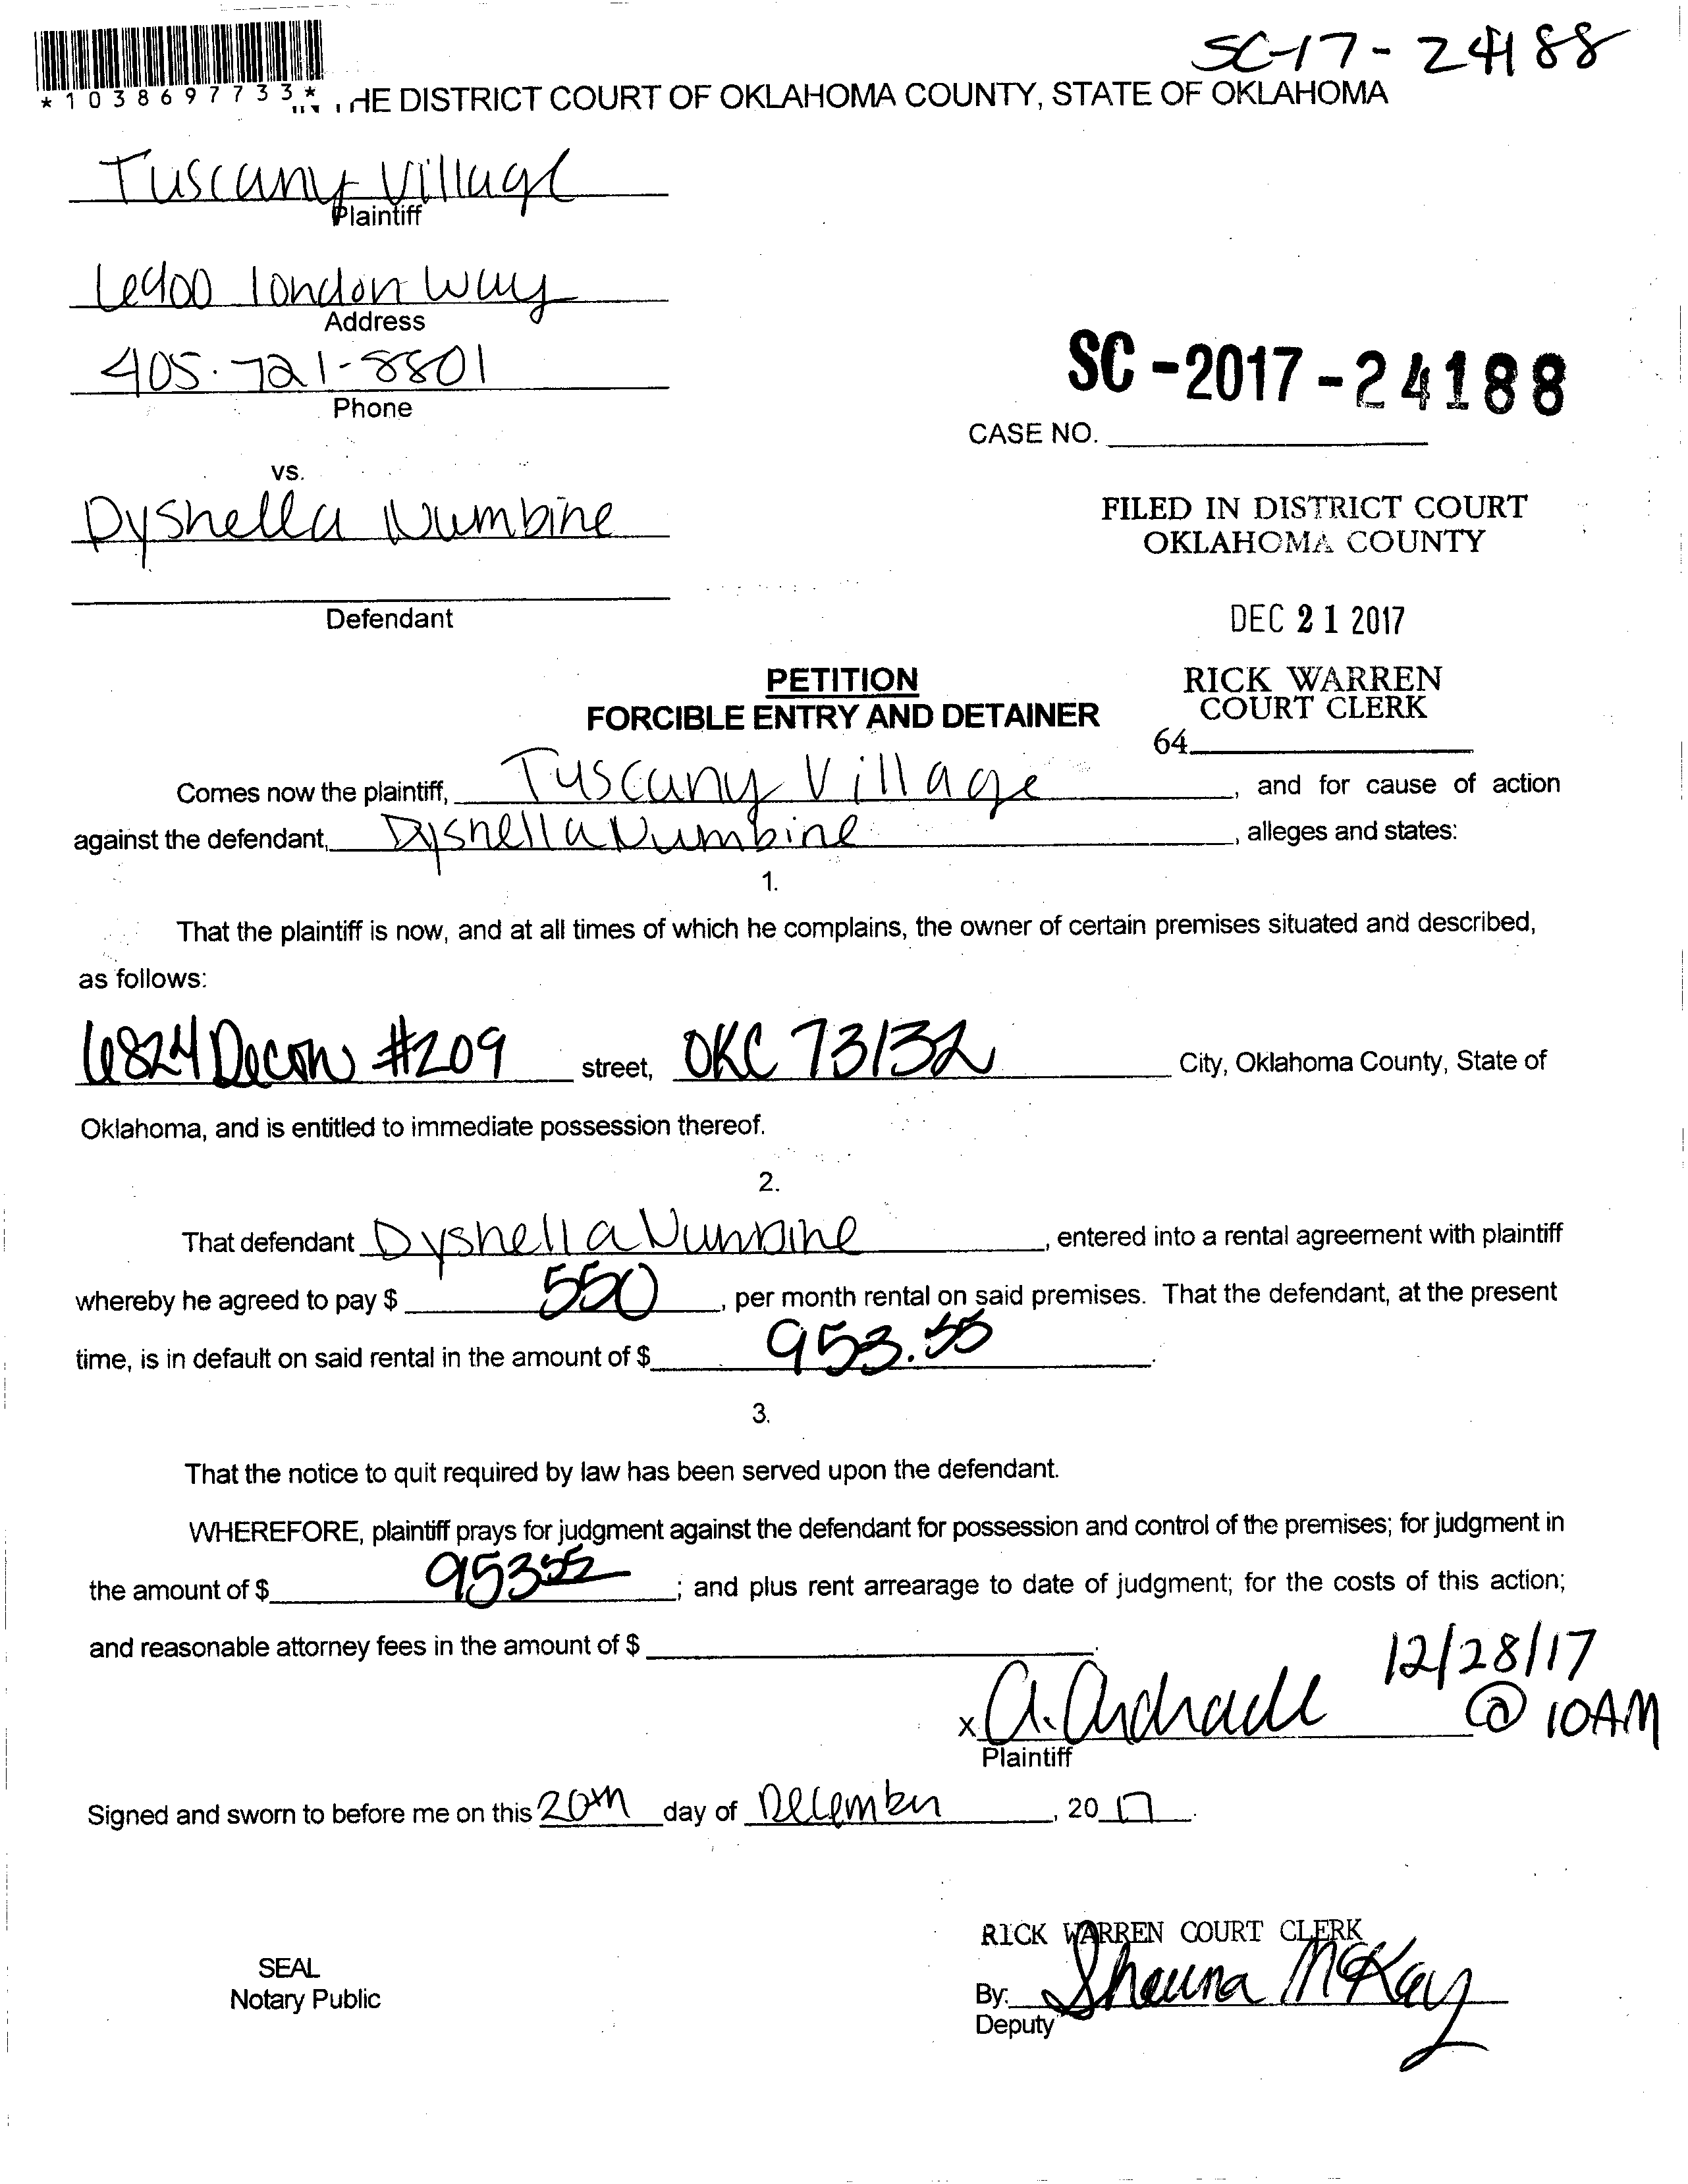 SC-17-24188
*1038697733*
THE DISTRICT COURT OF OKLAHOMA COUNTY, STATE OF OKLAHOMA
Tuscany Village
Plaintiff
6900 london way
Address
405-721-8801
Phone
SC-2017-24188
CASE NO.
vs.
Dyshella Numbine
FILED IN DISTRICT COURT
OKLAHOMA COUNTY
Defendant
DEC 21 2017
PETITION
FORCIBLE ENTRY AND DETAINER
RICK WARREN
COURT CLERK
64
Comes now the plaintiff, Tuscany Village, and for cause of action
against the defendant, Dyshella Numbine, alleges and states:
1.
That the plaintiff is now, and at all times of which he complains, the owner of certain premises situated and described,
as follows:
6824 #209 street, OKC 73132 City, Oklahoma County, State of
Oklahoma, and is entitled to immediate possession thereof.
2.
That defendant Dyshella Numbine, entered into a rental agreement with plaintiff
whereby he agreed to pay $ 550, per month rental on said premises. That the defendant, at the present
time, is in default on said rental in the amount of $ 953.55.
3.
That the notice to quit required by law has been served upon the defendant.
WHEREFORE, plaintiff prays for judgment against the defendant for possession and control of the premises; for judgment in
the amount of $ 953 55; and plus rent arrearage to date of judgment; for the costs of this action;
and reasonable attorney fees in the amount of $ .
12/28/17
@ 10AM
x A. Andrade
Plaintiff
Signed and sworn to before me on this 20th day of December, 20 17.
RICK WARREN COURT CLERK
SEAL
Notary Public
By: Shauna McKay
Deputy